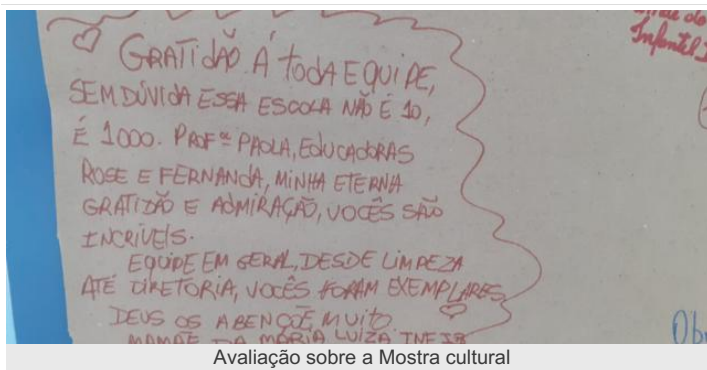 GRATIDÃO Á TODA EQUIPE,
SEM DÚVIDA ESSA ESCOLA NÃO É 10,
É 1000. PROFª PAOLA, EDUCADORAS
ROSE E FERNANDA, MINHA ETERNA
GRATIDÃO E ADMIRAÇÃO, VOCÊS SÃO
INCRIVEIS.
EQUIPE EM GERAL, DESDE LIMPEZA
ATÉ DIRETORIA, VOCÊS FORAM EXEMPLARES
DEUS OS ABENÇOE MUITO
MAMÃE DA MARIA LUIZA
Infantil
Avaliação sobre a Mostra cultural